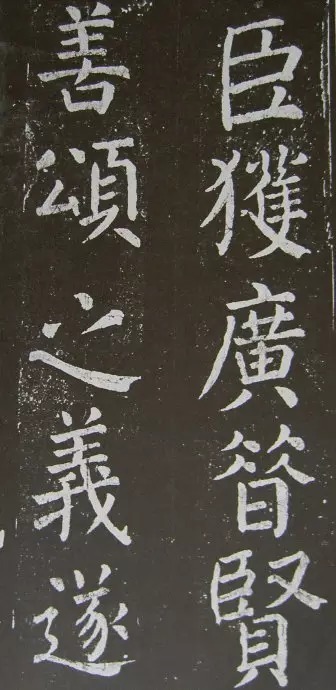 臣獲廣昝賢
善頌之義遂